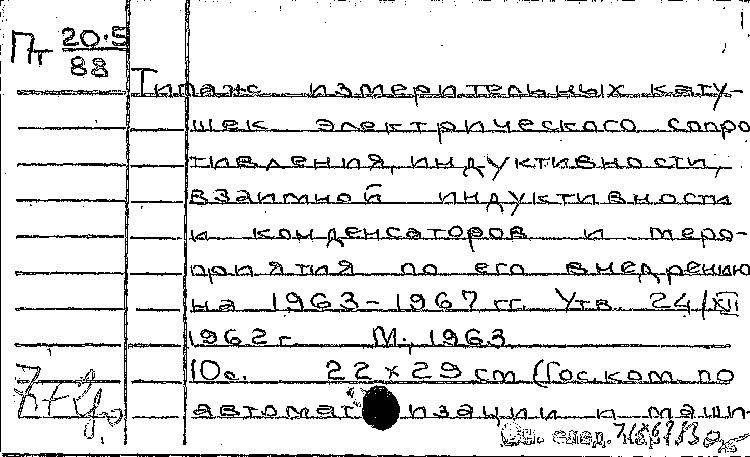 Пт 20.5
88
Типаж измерительных кату-
шек электрического сопро
тивления, индуктивности,
взаимной индуктивности
и конденсаторов и меро-
приятия по его внедрению
на 1963-1967 гг. Утв. 24/XII
1962 г. М., 1963
10с. 22 × 29 см (Гос.ком. по
автоматизации и маши-
См. след.